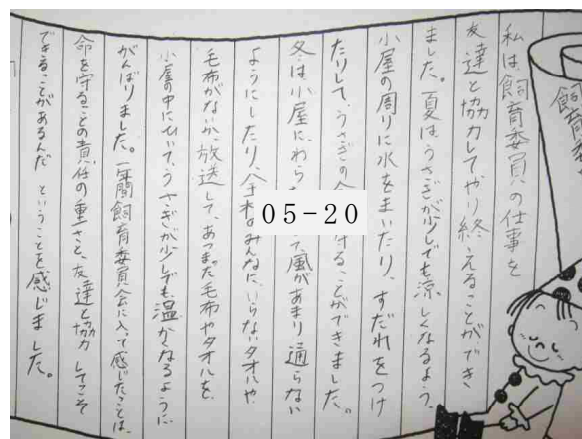 飼育委
私は飼育委員の仕事を
友達と協力してやり終えることができ
ました。夏は、うさぎが少しでも涼しくなるよう、
小屋の周りに水をまいたり、すだれをつけ
たりして、うさぎの 守ることができました。
冬は小屋に、わら て、風があまり通らない
ようにしたり、八千代 みんなに、いらないタオルや
毛布がないか放送して、あつまった毛布やタオルを、
小屋の中にひいて、うさぎが少しでも温かくなるように
がんばりました。一年間飼育委員会に入って感じたことは、
命を守ることの責任の重さと、友達と協力してこそ
できることがあるんだ ということを感じました。
05-20